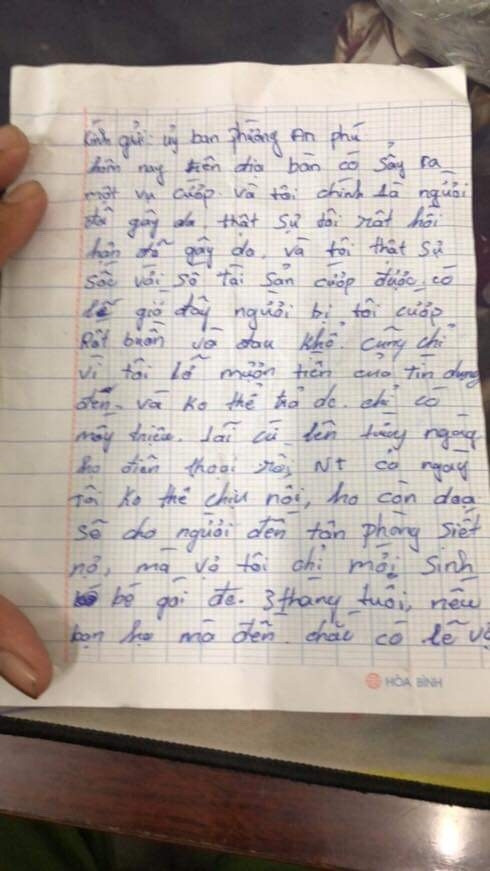 Kính gửi: uỷ ban phường An phú
hôm nay trên địa bàn có Sảy ra
một vụ cướp. và tôi chính là người
đã gây da thật sự tôi rất hối
hận đã gây da. và tôi thật sự
sốc với số tài sản cướp được. có
lẽ giờ đây người bị tôi cướp
Rất buồn và đau khổ. cũng chỉ
vì tôi lỡ mượn tiền của Tín dụng
đen. và ko thể trả dc. chỉ có
mấy triệu. lãi cứ lên từng ngày
họ điện thoại rồi, NT cả ngày
Tôi ko thể chịu nổi, họ còn dọa
Sẽ cho người đến tận phòng siết
nợ, mà vợ tôi chỉ mới Sinh
bé gái đc. 3 tháng tuổi, nếu
bọn họ mà đến. chắc có lẽ vợ
HÒA BÌNH